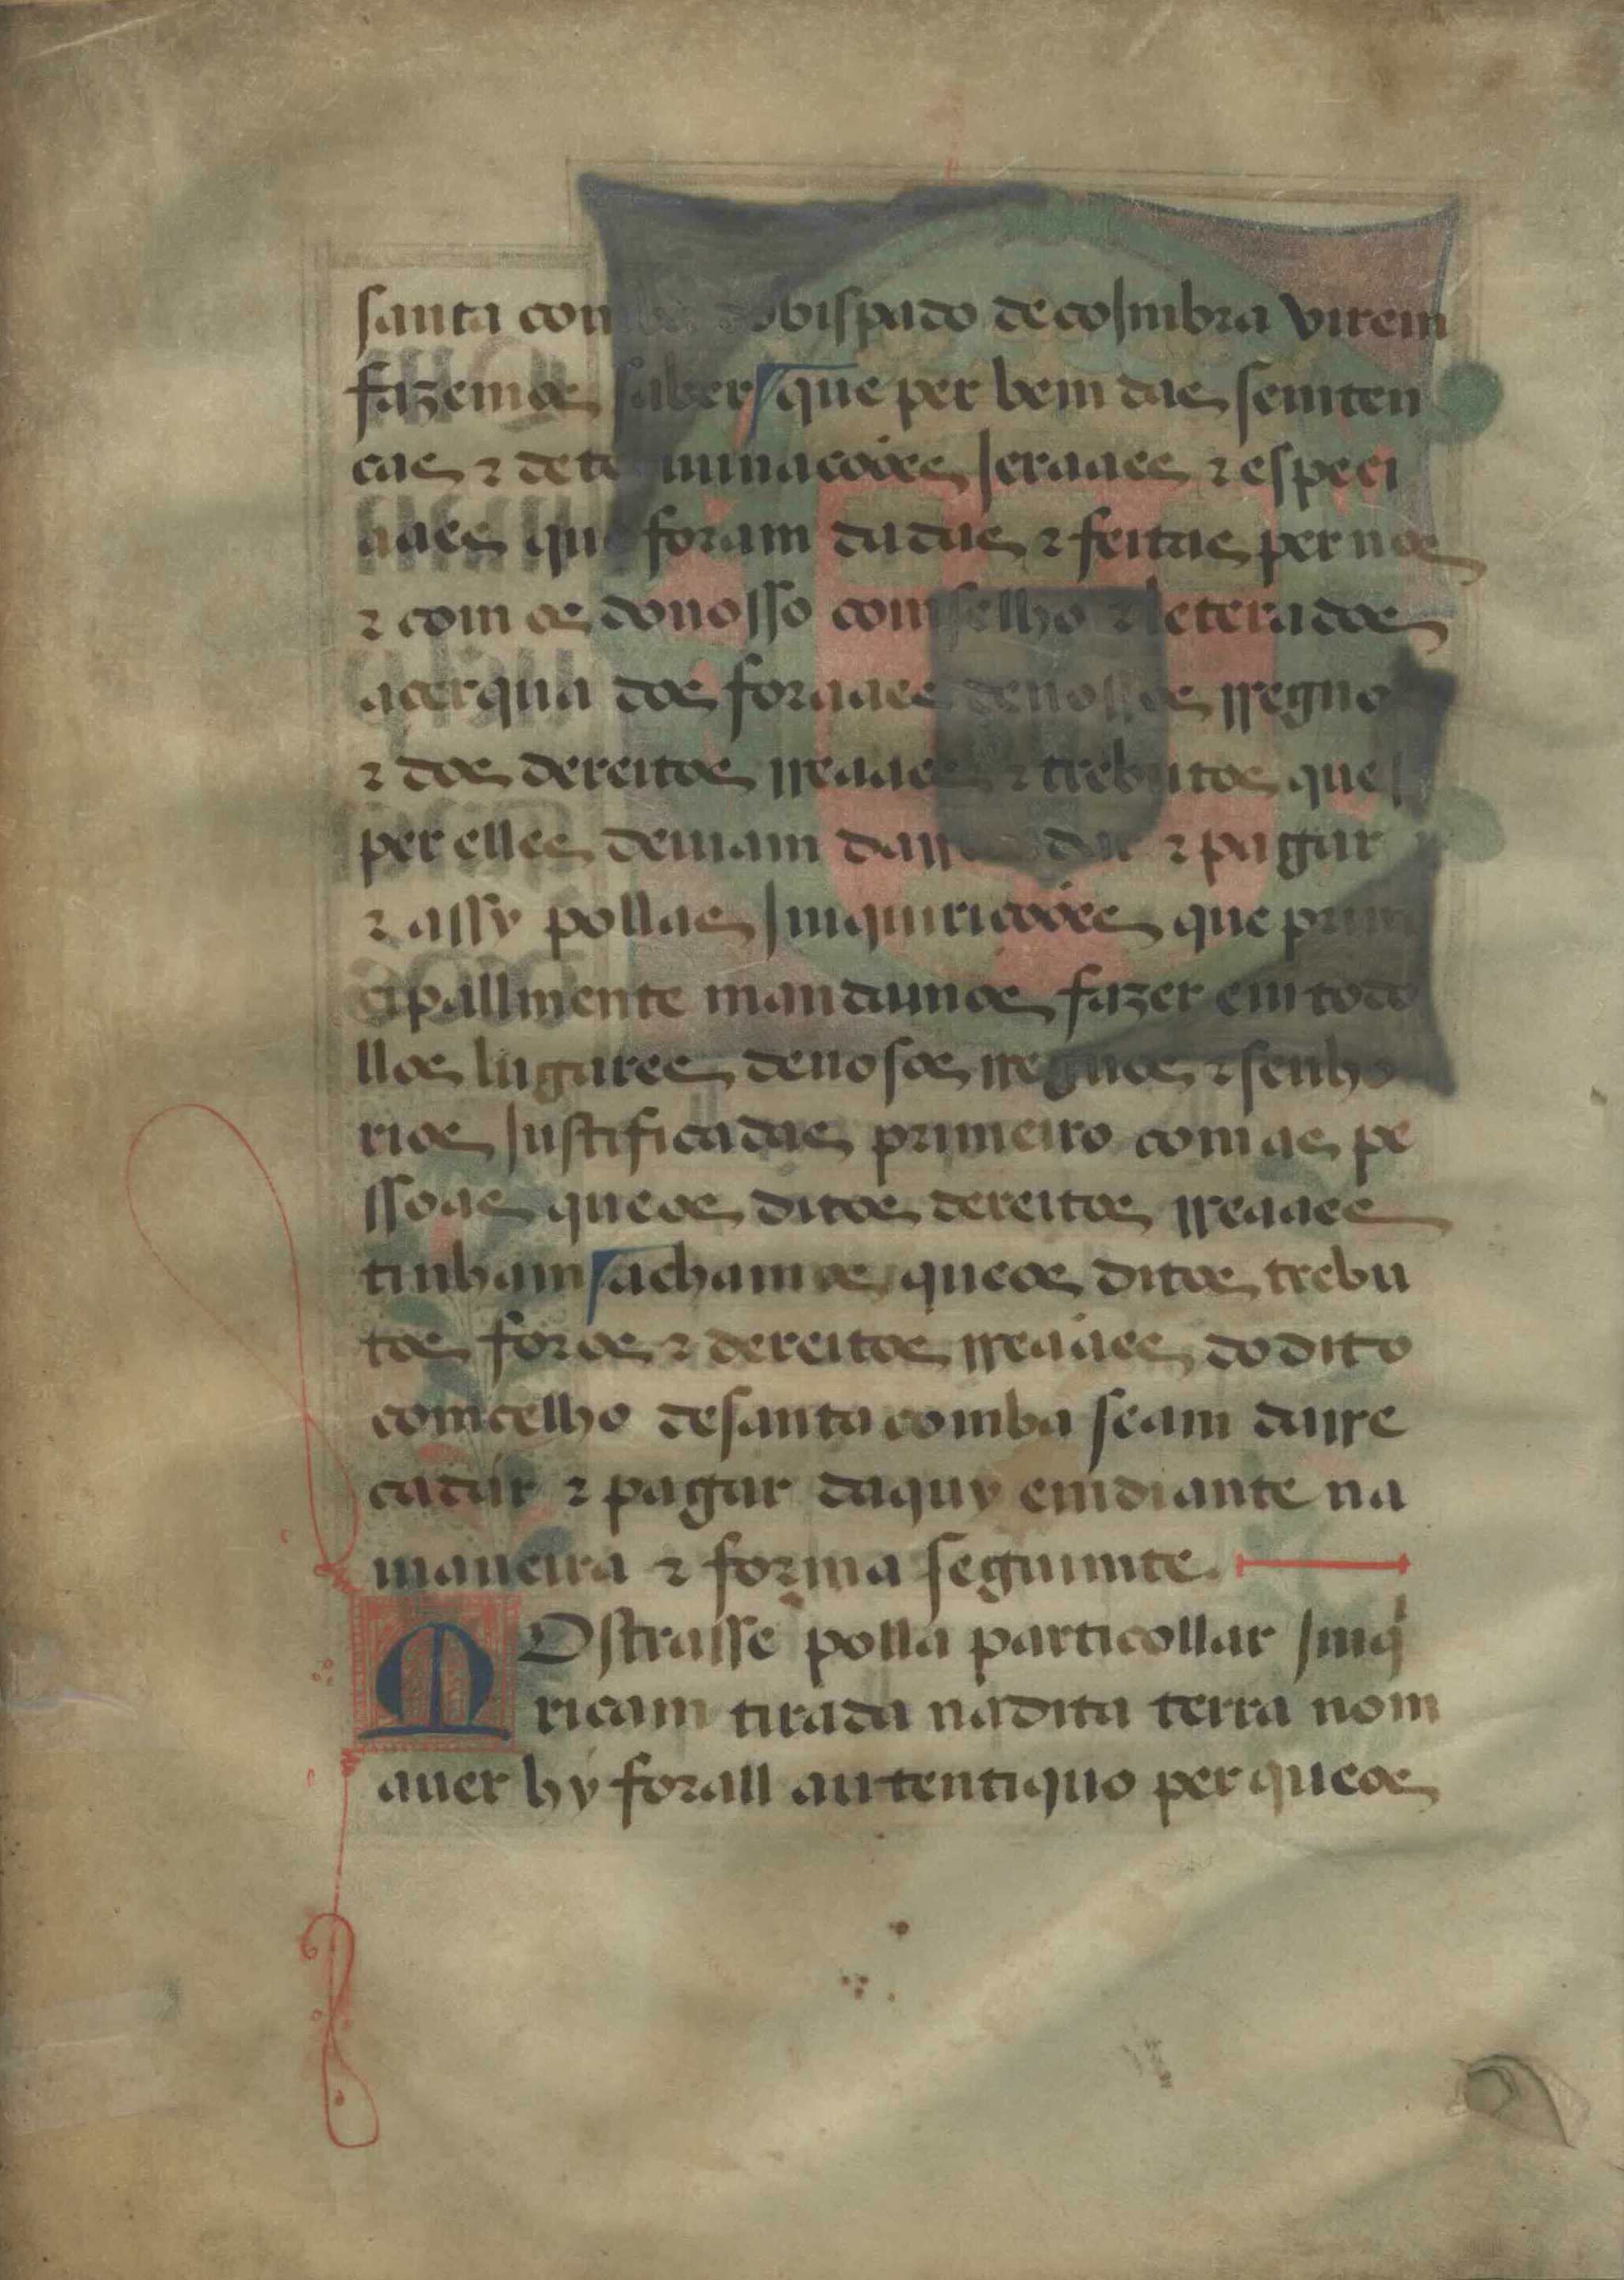 santa comba do bispado de cojmbra virem
fazemos saber que per bem das semten
cas ⁊ determinacoões jeraaes ⁊ especi
aaes que foram dadas ⁊ feitas per nos
⁊ com os do nosso comselho ⁊ leterados
acerqua dos foraaes de nossos rregno
⁊ dos dereitos rreaaes ⁊ trebutos que
per elles deuiam darrecadar ⁊ pagar
⁊ assy pollas jmquiricoões que prim
cipallmente mandamos fazer em todo
llos lugares de nosos rregnos ⁊ senho
rios justificadas primeiro com as pe
ssoas que os ditos dereitos rreaaes
tinham achamos que os ditos trebu
tos foros ⁊ dereitos rreaaes do dito
comcelho de santa comba seam darre
cadar ⁊ pagar daquy em diante na
maneira ⁊ forma seguimte.
MOstrasse polla particollar jmqi
ricam tirada na dita terra nom
auer hy forall autentiquo per que os